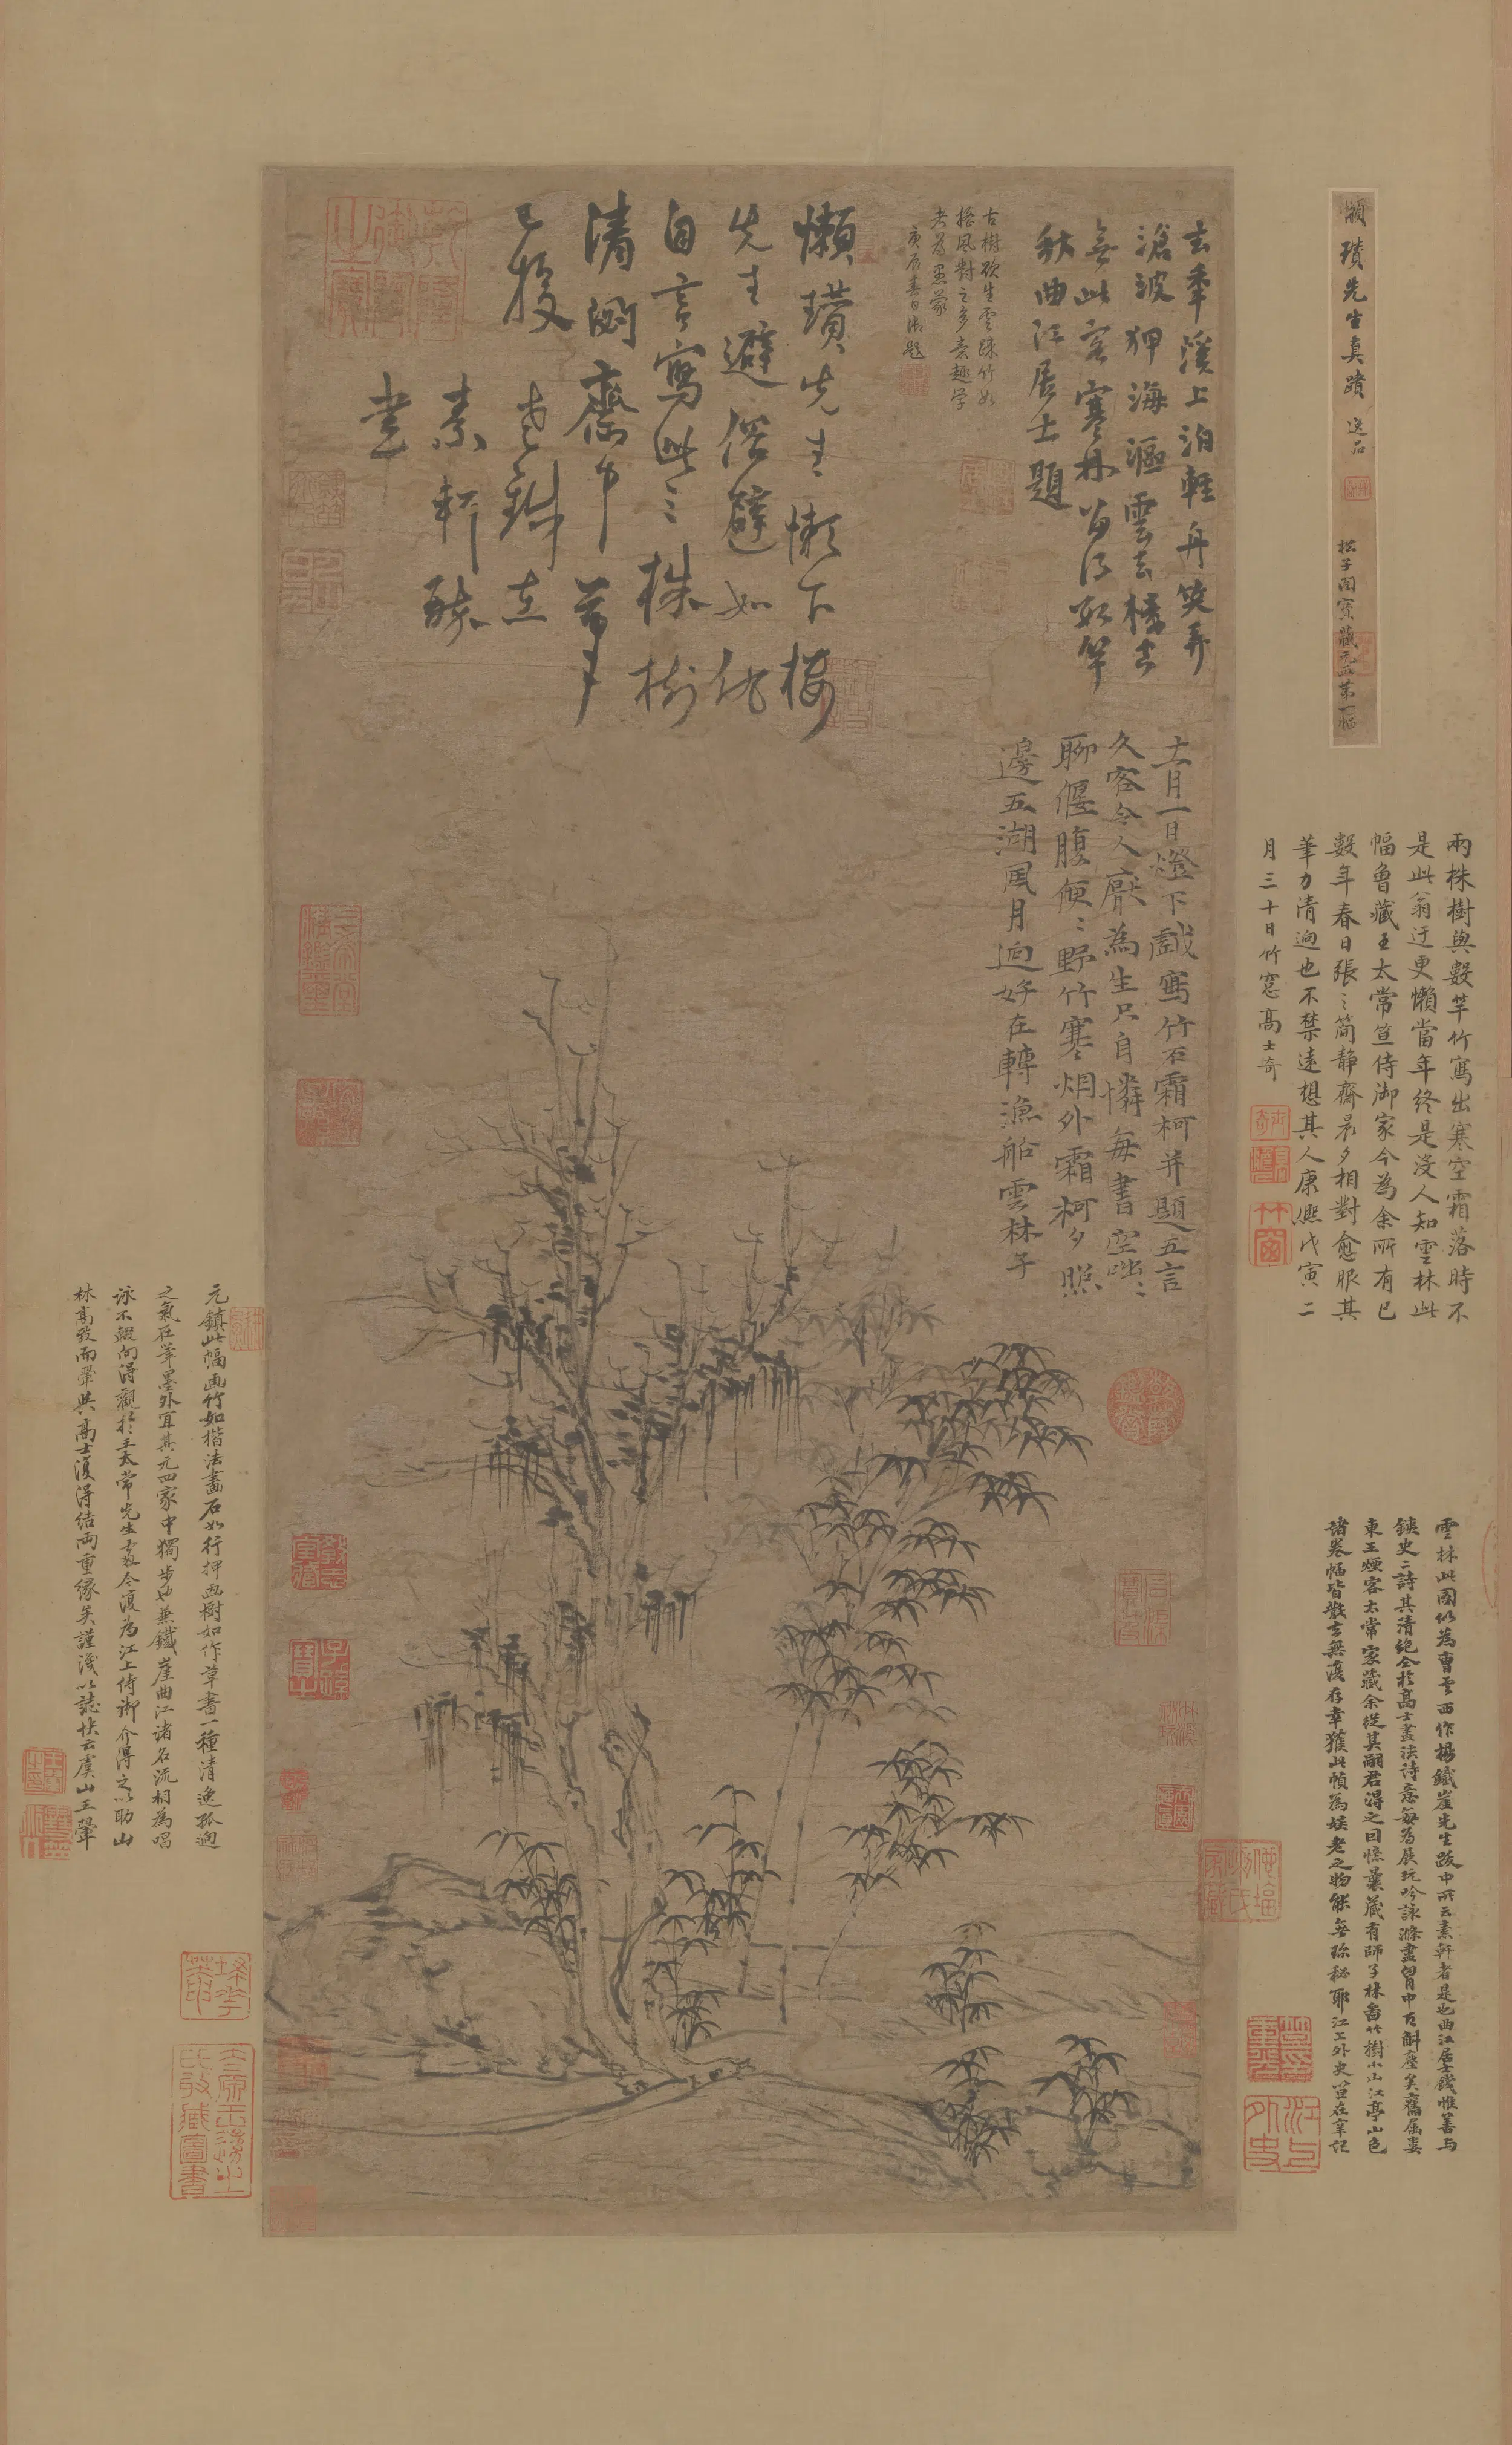 懶瓚先生真蹟 逸品
松子閣寶藏元四第一幅
去年溪上泊輕舟笑弄
滄波狎海漚雲去樓古
無此客寒林留得數竿
秋曲江居士題
古樹欲生雲踈竹如
搖風對之多素趣学
老為思蒙
庚辰春日御題
懶瓚先生懶下樓
先生避俗避如仇
自言寫此三株樹
清閟齋中筆
已投
老鐵在
素軒醉
書
十二月一日燈下戲寫竹石霜柯并題五言
久客令人厭為生只自憐每書空咄咄
聊偃腹便便野竹寒烟外霜柯夕照
邊五湖風月迥好在轉漁船雲林子
兩株樹與數竿竹寫出寒空霜落時不
是此翁迂更懶當年終是没人知雲林此
幅魯藏王太常笪侍御家今為余所有已
數年春日張之簡静齋晨夕相對愈服其
筆力清迥也不禁遠想其人康熙戊寅二
月三十日竹窓高士奇
雲林此圖似為曹雲西作楊鐵崖先生跋中所云素軒者是也曲江居士錢惟善与
鐵史二詩其清絶全於高士畫法詩意每為展玩吟詠滌盡胷中百斛塵矣舊属婁
東王煙客太常家藏余從其嗣君得之曰憶曩藏有師子林畨竹樹小山江亭山色
諸卷幅皆散去無復存幸獲此幀為娱老之物能無珎秘耶江上外史笪在辛記
元鎮此幅画竹如楷法畫石如行押画樹如作草書一種清逸孤迥
之氣在筆墨外宜其元四家中獨步也兼鐵崖曲江諸名流相為唱
詠不輟向得觀於王太常先生處今復為江上侍御介得之以助山
林高致而翬與高士復得結兩重緣矣謹識以誌快云虞山王翬